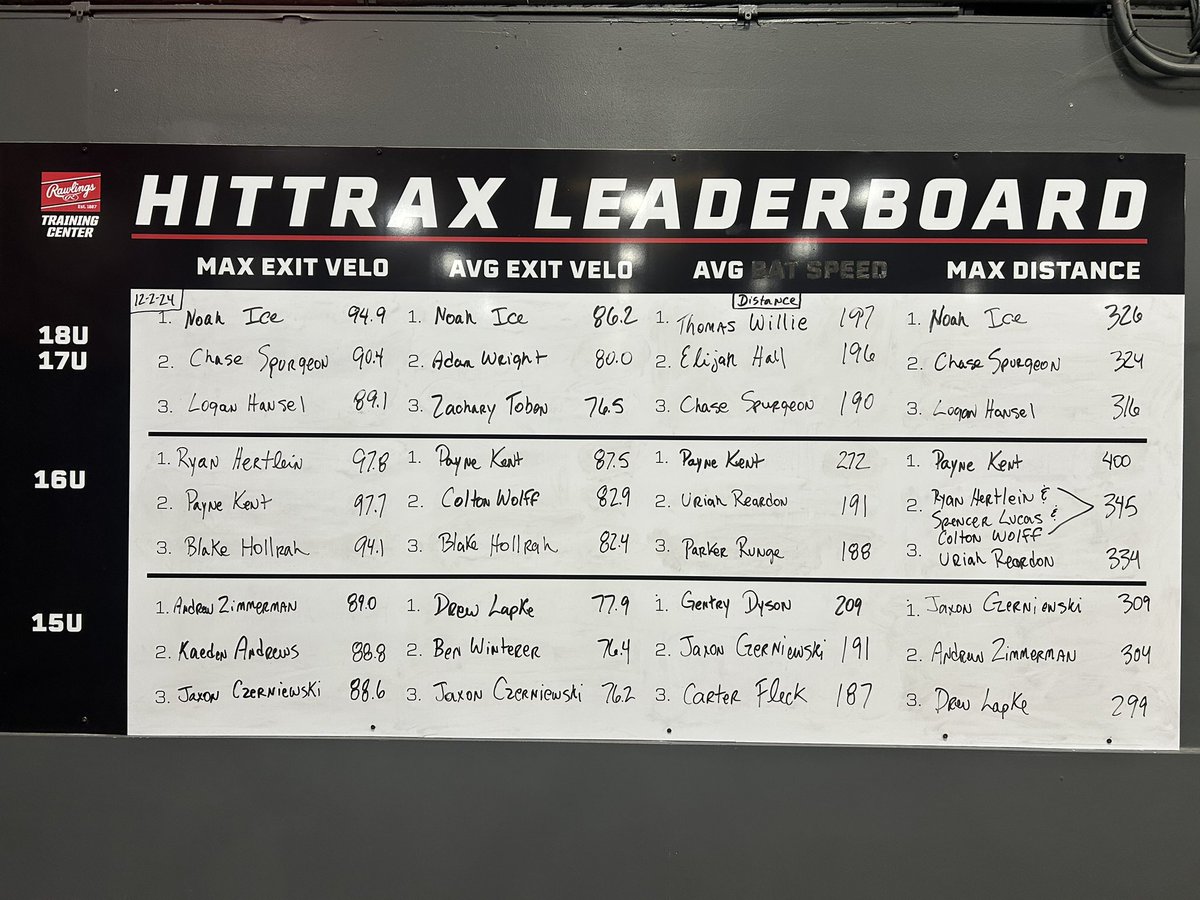 Rawlings
Est. 1887
TRAINING
CENTER
HITTRAX LEADERBOARD
MAX EXIT VELO AVG EXIT VELO AVG BAT SPEED MAX DISTANCE
12-2-24 Distance
18U
17U
1. Noah Ice 94.9 1. Noah Ice 86.2 1. Thomas Willie 197 1. Noah Ice 326
2. Chase Spurgeon 90.4 2. Adam Wright 80.0 2. Elijah Hall 196 2. Chase Spurgeon 324
3. Logan Hansel 89.1 3. Zachary Toben 76.5 3. Chase Spurgeon 190 3. Logan Hansel 316
16U
1. Ryan Hertlein 97.8 1. Payne Kent 87.5 1. Payne Kent 272 1. Payne Kent 400
2. Payne Kent 97.7 2. Colton Wolff 82.9 2. Uriah Reardon 191 2. Ryan Hertlein &
Spencer Lucas & 345
Colton Wolff
3. Blake Hollrah 94.1 3. Blake Hollrah 82.4 3. Parker Runge 188 3. Uriah Reardon 334
15U
1. Andrew Zimmerman 89.0 1. Drew Lapke 77.9 1. Gentry Dyson 209 1. Jaxon Czerniewski 309
2. Kaeden Andrews 88.8 2. Ben Winterer 76.4 2. Jaxon Czerniewski 191 2. Andrew Zimmerman 304
3. Jaxon Czerniewski 88.6 3. Jaxon Czerniewski 76.2 3. Carter Fleck 187 3. Drew Lapke 299